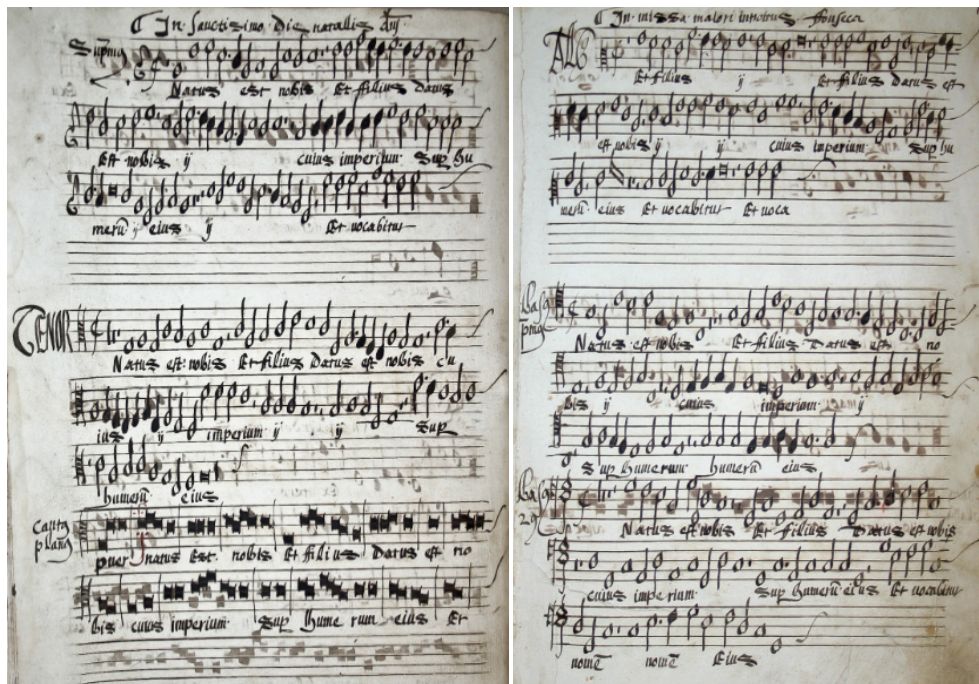 In Sanctissimo Die natallis Dnj
Supnus
Natus est nobis Et filius datus
Est nobis ij cuius imperium Sup hu
merū ij eius ij Et vocabitur
TENOR
Natus est nobis Et filius Datus est nobis cu
ius ij imperium ij ij Sup
humerū eius
Cantq planq
puer natus Est nobis Et filius Datus est no
bis cuius imperium Sup hume rum eius Et
In missa maiori introitus Fonseca
ALtq
Et filius ij Et filius Datus est
est nobis ij ij cuius imperium Sup hu
merū eius Et vocabitur Et voca
Basq pmq
Natus est nobis Et filius Datus est no
bis ij cuius imperium ij
Sup humerum humerū eius
Basq 2q
Natus est nobis Et filius Datus est nobis
cuius imperium Sup humerū eius Et vocabitur
nomē nomē Eius